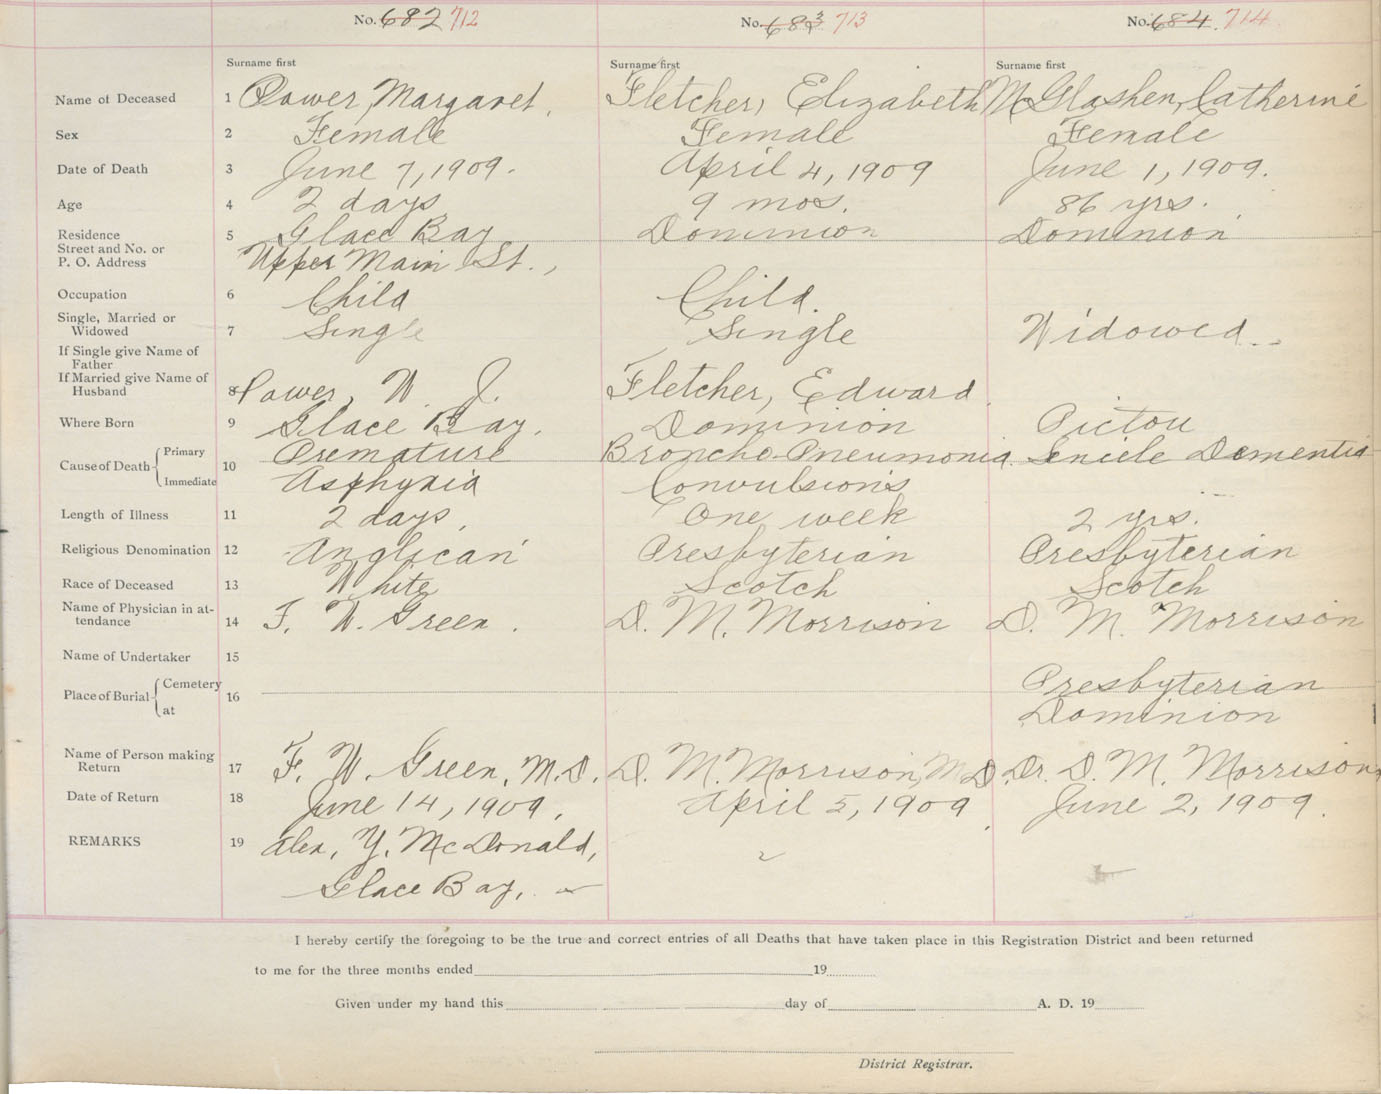 No. 682 712 No. 683 713 No. 684. 714
Surname first Surname first Surname first
Name of Deceased 1 Power, Margaret, Fletcher, Elizabeth McGlashen, Catherine
Sex 2 Female Female Female
Date of Death 3 June 7, 1909. April 4, 1909 June 1, 1909.
Age 4 2 days 9 mos. 86 yrs.
Residence 5 Glace Bay Dominion Dominion
Street and No. or
P. O. Address Upper Main St.,
Occupation 6 Child Child.
Single, Married or
Widowed 7 Single Single Widowed
If Single give Name of
Father
If Married give Name of
Husband 8 Power, W. J. Fletcher, Edward
Where Born 9 Glace Bay. Dominion Pictou
Cause of Death Primary 10 Premature Broncho-Pneumonia Seniele Dementia
Immediate Asphyxia Convulsions
Length of Illness 11 2 days. One week 2 yrs.
Religious Denomination 12 Anglican Presbyterian Presbyterian
Race of Deceased 13 White Scotch Scotch
Name of Physician in at-
tendance 14 F. W. Green. D. M. Morrison D. M. Morrison
Name of Undertaker 15
Place of Burial Cemetery 16 Presbyterian
at Dominion
Name of Person making
Return 17 F. W. Green, M.D. D. M. Morrison, M.D. Dr. D. M. Morrison,
Date of Return 18 June 14, 1909. April 5, 1909 June 2, 1909.
REMARKS 19 Alex, Y. McDonald,
Glace Bay.
I hereby certify the foregoing to be the true and correct entries of all Deaths that have taken place in this Registration District and been returned
to me for the three months ended 19
Given under my hand this day of A. D. 19
District Registrar.